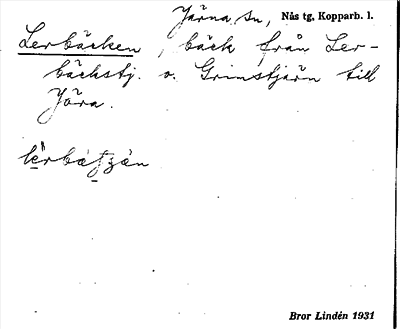 Järna sn, Nås tg, Kopparb. l.
Lerbäcken, bäck från Ler-
bäckstj. o. Grimstjärn till
Jöra.
Bror Lindén 1931